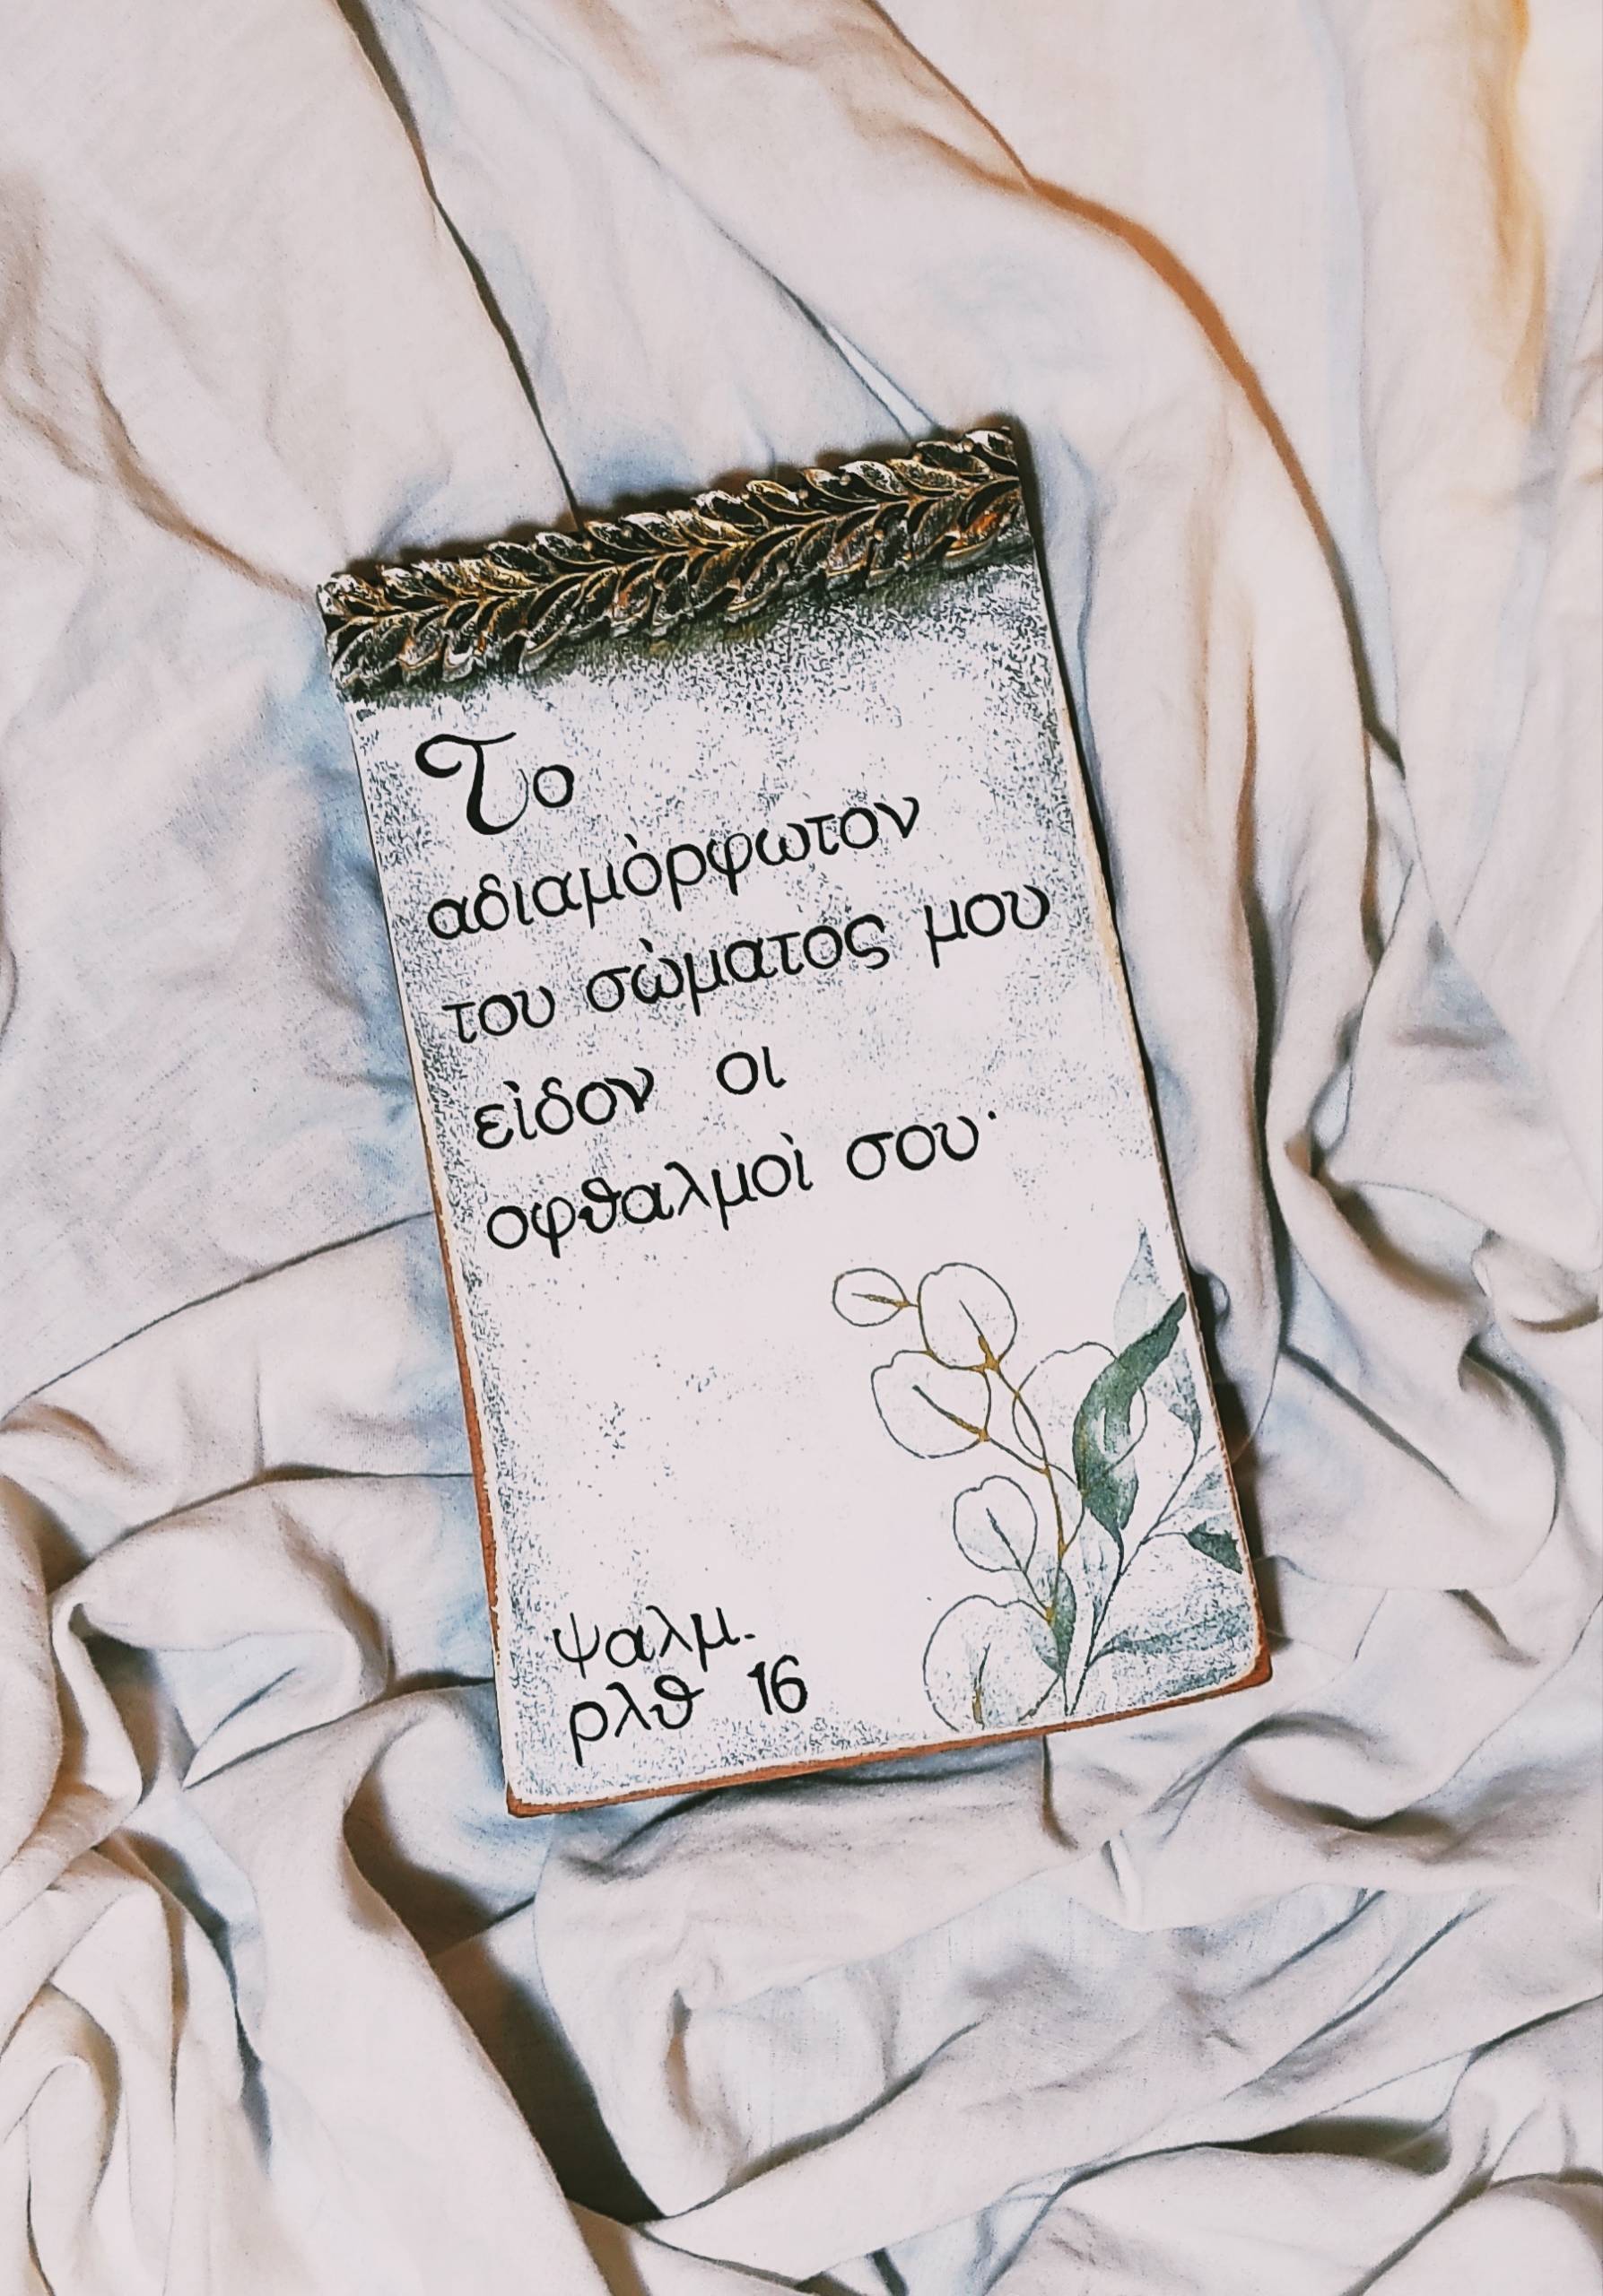 Το
αδιαμὸρφωτον
του σὼματὸς μου
εὶδον οι
οφθαλμοὶ σου·
ψαλμ.
ρλθ 16